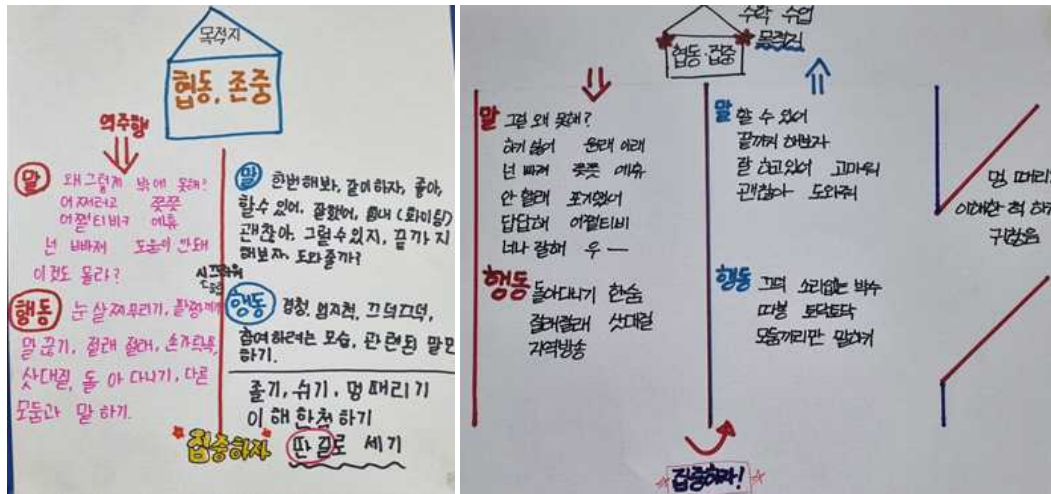 목적지
협동, 존중
역주행
말
왜 그렇게 밖에 못해?
어쩌라고 쯧쯧
어쩔티비ㅋ 에휴
넌 빠져 도움이 안돼
이것도 몰라?
시끄러워
행동
눈 살 찌푸리기,
말 끊기, 절래 절래, 손가락욕,
삿대질, 돌아다니기, 다른
모둠과 말 하기.
말
한번 해봐, 같이하자, 좋아,
할 수 있어, 잘했어, 힘내 (화이팅)
괜찮아, 그럴 수 있지, 끝까지
해보자, 도와줄까?
행동
경청, 엄지척, 끄덕끄덕,
참여하려는 모습, 관련된 말만
하기.
졸기, 쉬기, 멍 때리기
이해한척 하기
딴 길로 세기
집중하자
수학 수업
목적지
협동·집중
말
그걸 왜 못해?
하기 싫어 원래 이래
넌 빠져 쯧쯧 에휴
안 할래 포기했어
답답해 어쩔티비
너나 잘해 우 —
행동
돌아다니기 한숨
절래절래 삿대질
지역방송
말
할 수 있어
끝까지 해보자
잘 하고 있어 고마워
괜찮아 도와줘
행동
끄덕 소리없는 박수
따봉 토닥토닥
모둠끼리만 말하기
멍 때리
이해한 척 하
귀찮음
집중하자!